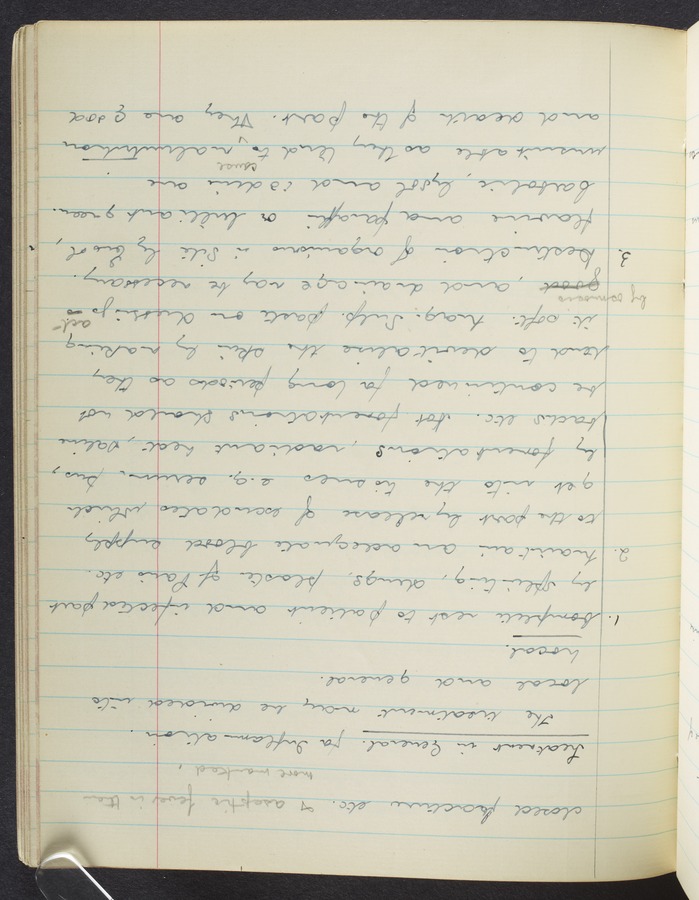 closed fracture etc. & aseptic fever is then
more marked,
Treatment in General for Inflammation.
The treatment may be divided into
local and general.
Local.
1. Complete rest to patient and infected part
by splinting, slings, plaster of Paris etc.
2. Maintain an adequate blood supply
to the part by release of exudates which
get into the tissues e.g. serum, pus,
by fomentations, radiant heat, saline
packs etc. Hot fomentations should not
be continued for long periods as they
tend to devitalise the skin by making
it soft. Mag. Sulp. pack or dressing
act
by osmosis
good, and drainage may be necessary.
3. Destruction of organisms in situ by Eusol,
flavine and paraffin or brilliant green.
Carbolic, lysol and iodine are
unsuitable as they tend to cause malnutrition
and death of the part. They are good